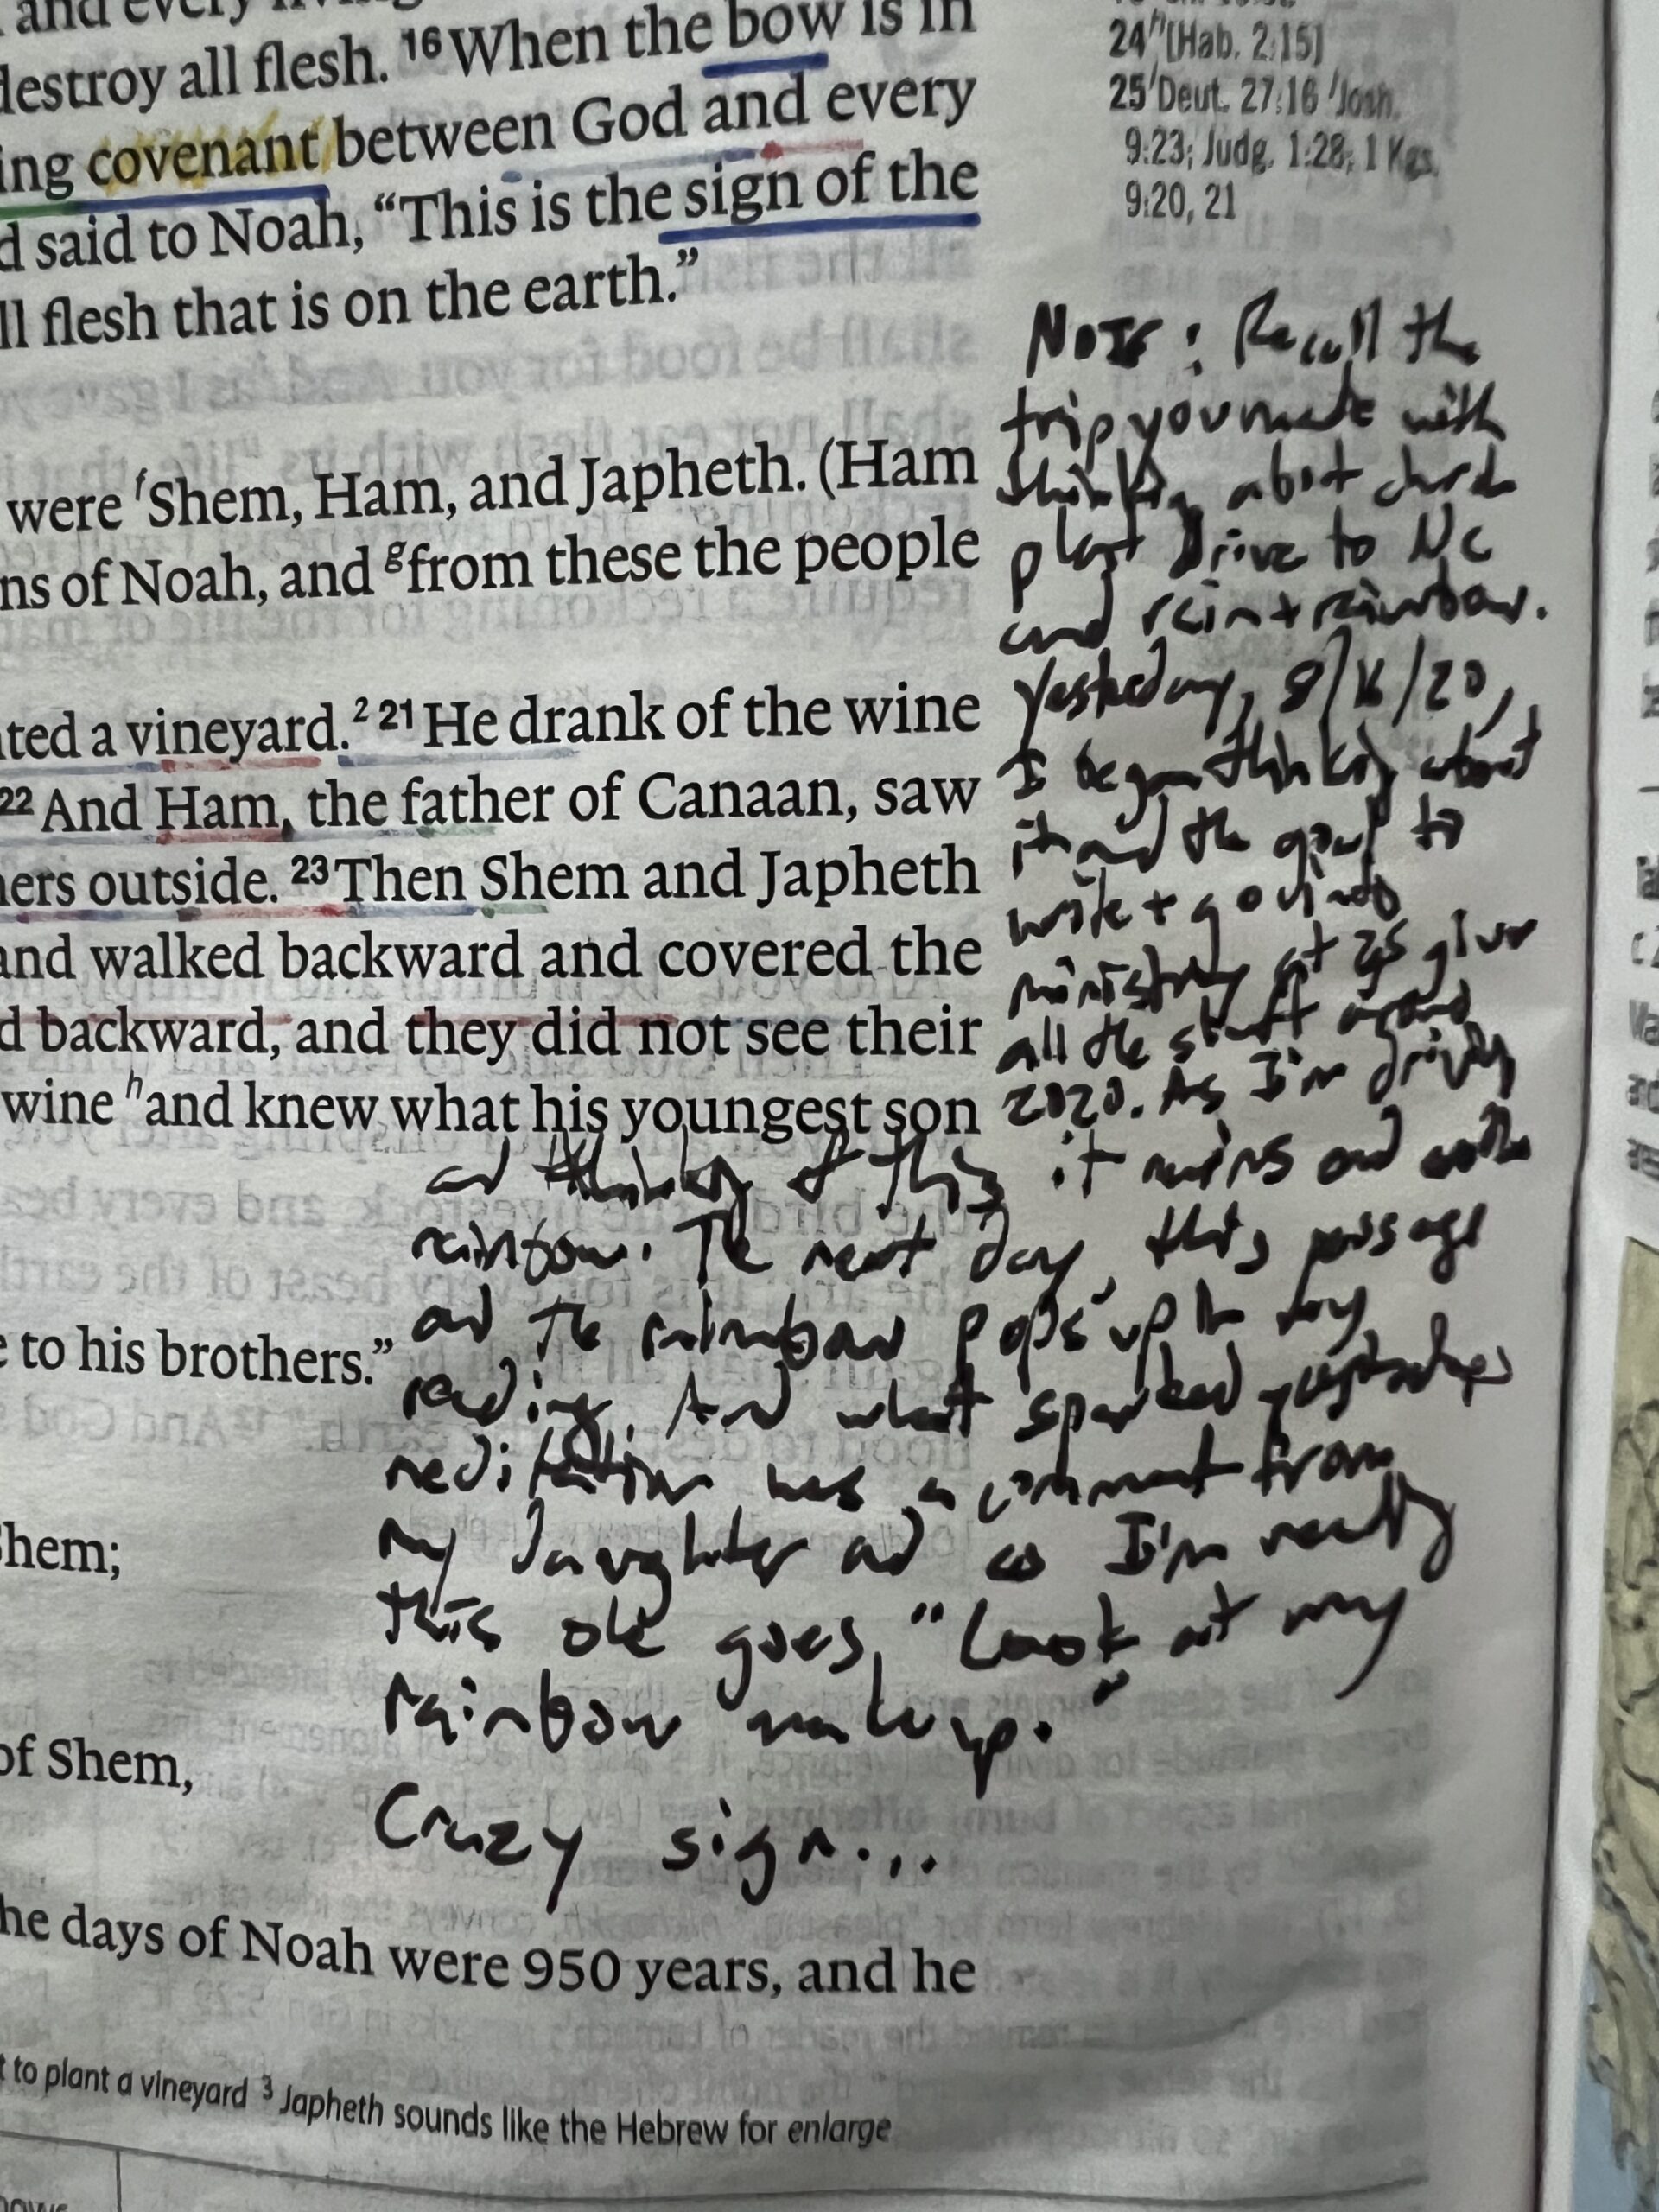 and every living
destroy all flesh. 16 When the bow is in
ing covenant between God and every
d said to Noah, “This is the sign of the
ll flesh that is on the earth.”
were f Shem, Ham, and Japheth. (Ham
ns of Noah, and g from these the people
ted a vineyard.2 21 He drank of the wine
22 And Ham, the father of Canaan, saw
hers outside. 23 Then Shem and Japheth
and walked backward and covered the
d backward, and they did not see their
wine h and knew what his youngest son
e to his brothers.”
Shem;
of Shem,
he days of Noah were 950 years, and he
t to plant a vineyard 3 Japheth sounds like the Hebrew for enlarge
24 h [Hab. 2:15]
25 i Deut. 27:16 j Josh.
9:23; Judg. 1:28; 1 Kgs.
9:20, 21
Note: Recall the
trip you made with
thinking about church
plant Drive to NC
and rain + rainbow.
Yesterday, 8/16/20,
I began thinking about
it and the goal to
write + go into
ministry at 25 given
all the stuff around
2020. As I'm driving
and thinking of this it rains and with
rainbow. The next day, this passage
and the rainbow pops up in my
reading. And what sparked yesterdays
meditation was a comment from
my daughter and as I'm reading
this she goes, "Look at my
rainbow makeup."
Crazy sign...